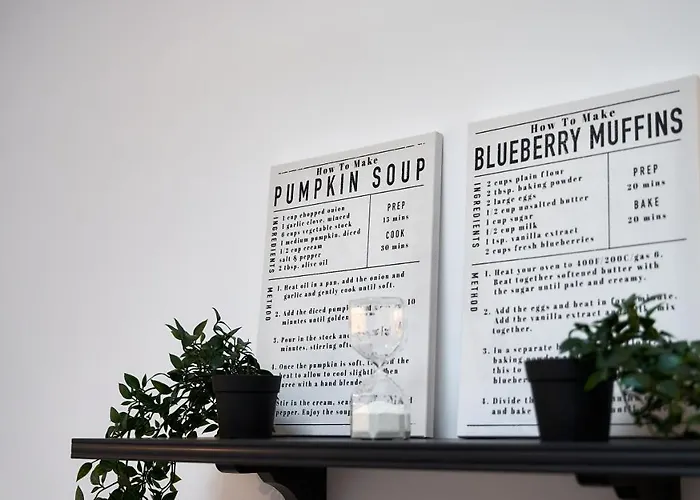 How To Make
PUMPKIN SOUP
INGREDIENTS
1 cup chopped onion
1 garlic clove, minced
6 cups vegetable stock
1 medium pumpkin, diced
1/2 cup cream
salt & pepper
2 tbsp. alive oil
PREP
15 mins
COOK
30 mins
METHOD
1. Heat oil in a pan, add the onion and
garlic and gently cook until soft.
2. Add the diced 10
minutes until golden
3. Pour in the stock
minutes, stirring
4. Once the pumpkin is soft,
to allow to cool slightly
with a hand
Stir in the cream,
pepper. Enjoy the
How To Make
BLUEBERRY MUFFINS
INGREDIENTS
2 cups plain flour
2 tbsp. baking powder
2 large eggs
1/2 cup unsalted butter
1 cup sugar
1/2 cup milk
1 tsp. vanilla extract
2 cups fresh blueberries
PREP
20 mins
BAKE
20 mins
METHOD
1. Heat your oven to 400F/200C/gas 6.
Beat together softened butter with
the sugar until pale and creamy.
2. Add the eggs and beat in for
Add the vanilla extract
together.
3. In a separate
baking
this to
4. Divide
and bake